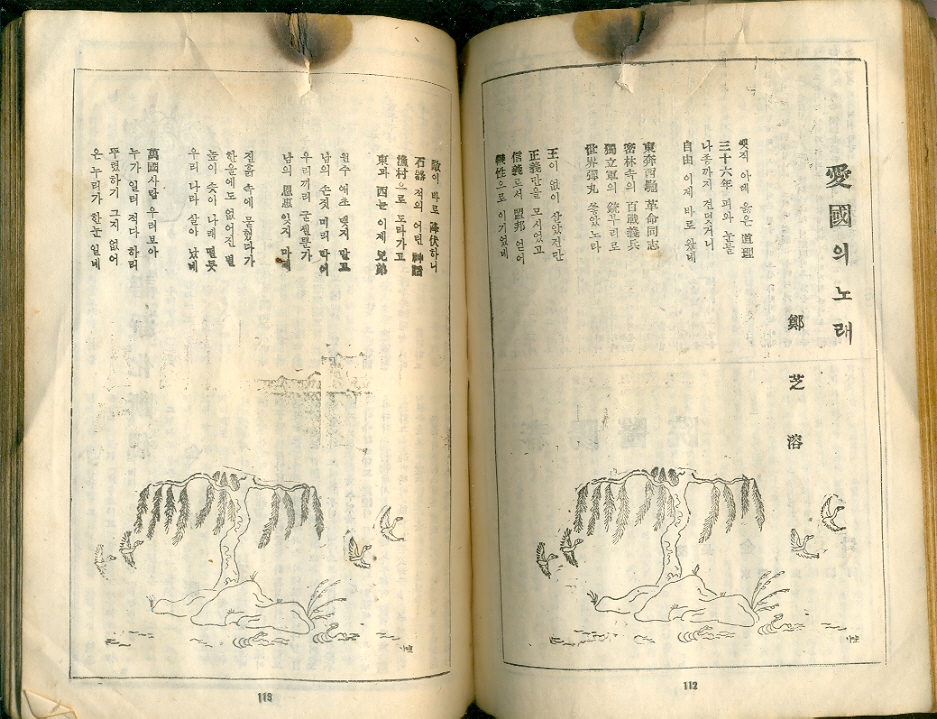 愛國의 노래
鄭芝溶
옛적 아래 옳은 道理
三十六年 피와 눈물
나종까지 견뎟거니
自由 이제 바로 왔네
東奔西馳 革命同志
密林속의 百戰義兵
獨立軍의 銃부리로
世界彈丸 쏳았노라
王이 없이 살았건만
正義만을 모시었고
信義로서 盟邦 얻어
犧牲으로 이기었네
112
敵이 바로 降伏하니
石器 적의 어린 神話
漁村으로 도라가고
東과 西는 이제 兄弟
원수 애초 맺지 말고
남의 손짓 미리 막어
우리끼리 굳셀뿐가
남의 恩惠 잊지 마세
진흙 속에 묻혔다가
한울에도 없어진 별
높이 솟아 나래 떨듯
우리 나라 살아 났네
萬國사람 우러보아
누가 일러 적다 하리
뚜렷하기 그지 없어
온 누리가 한눈 일네
113